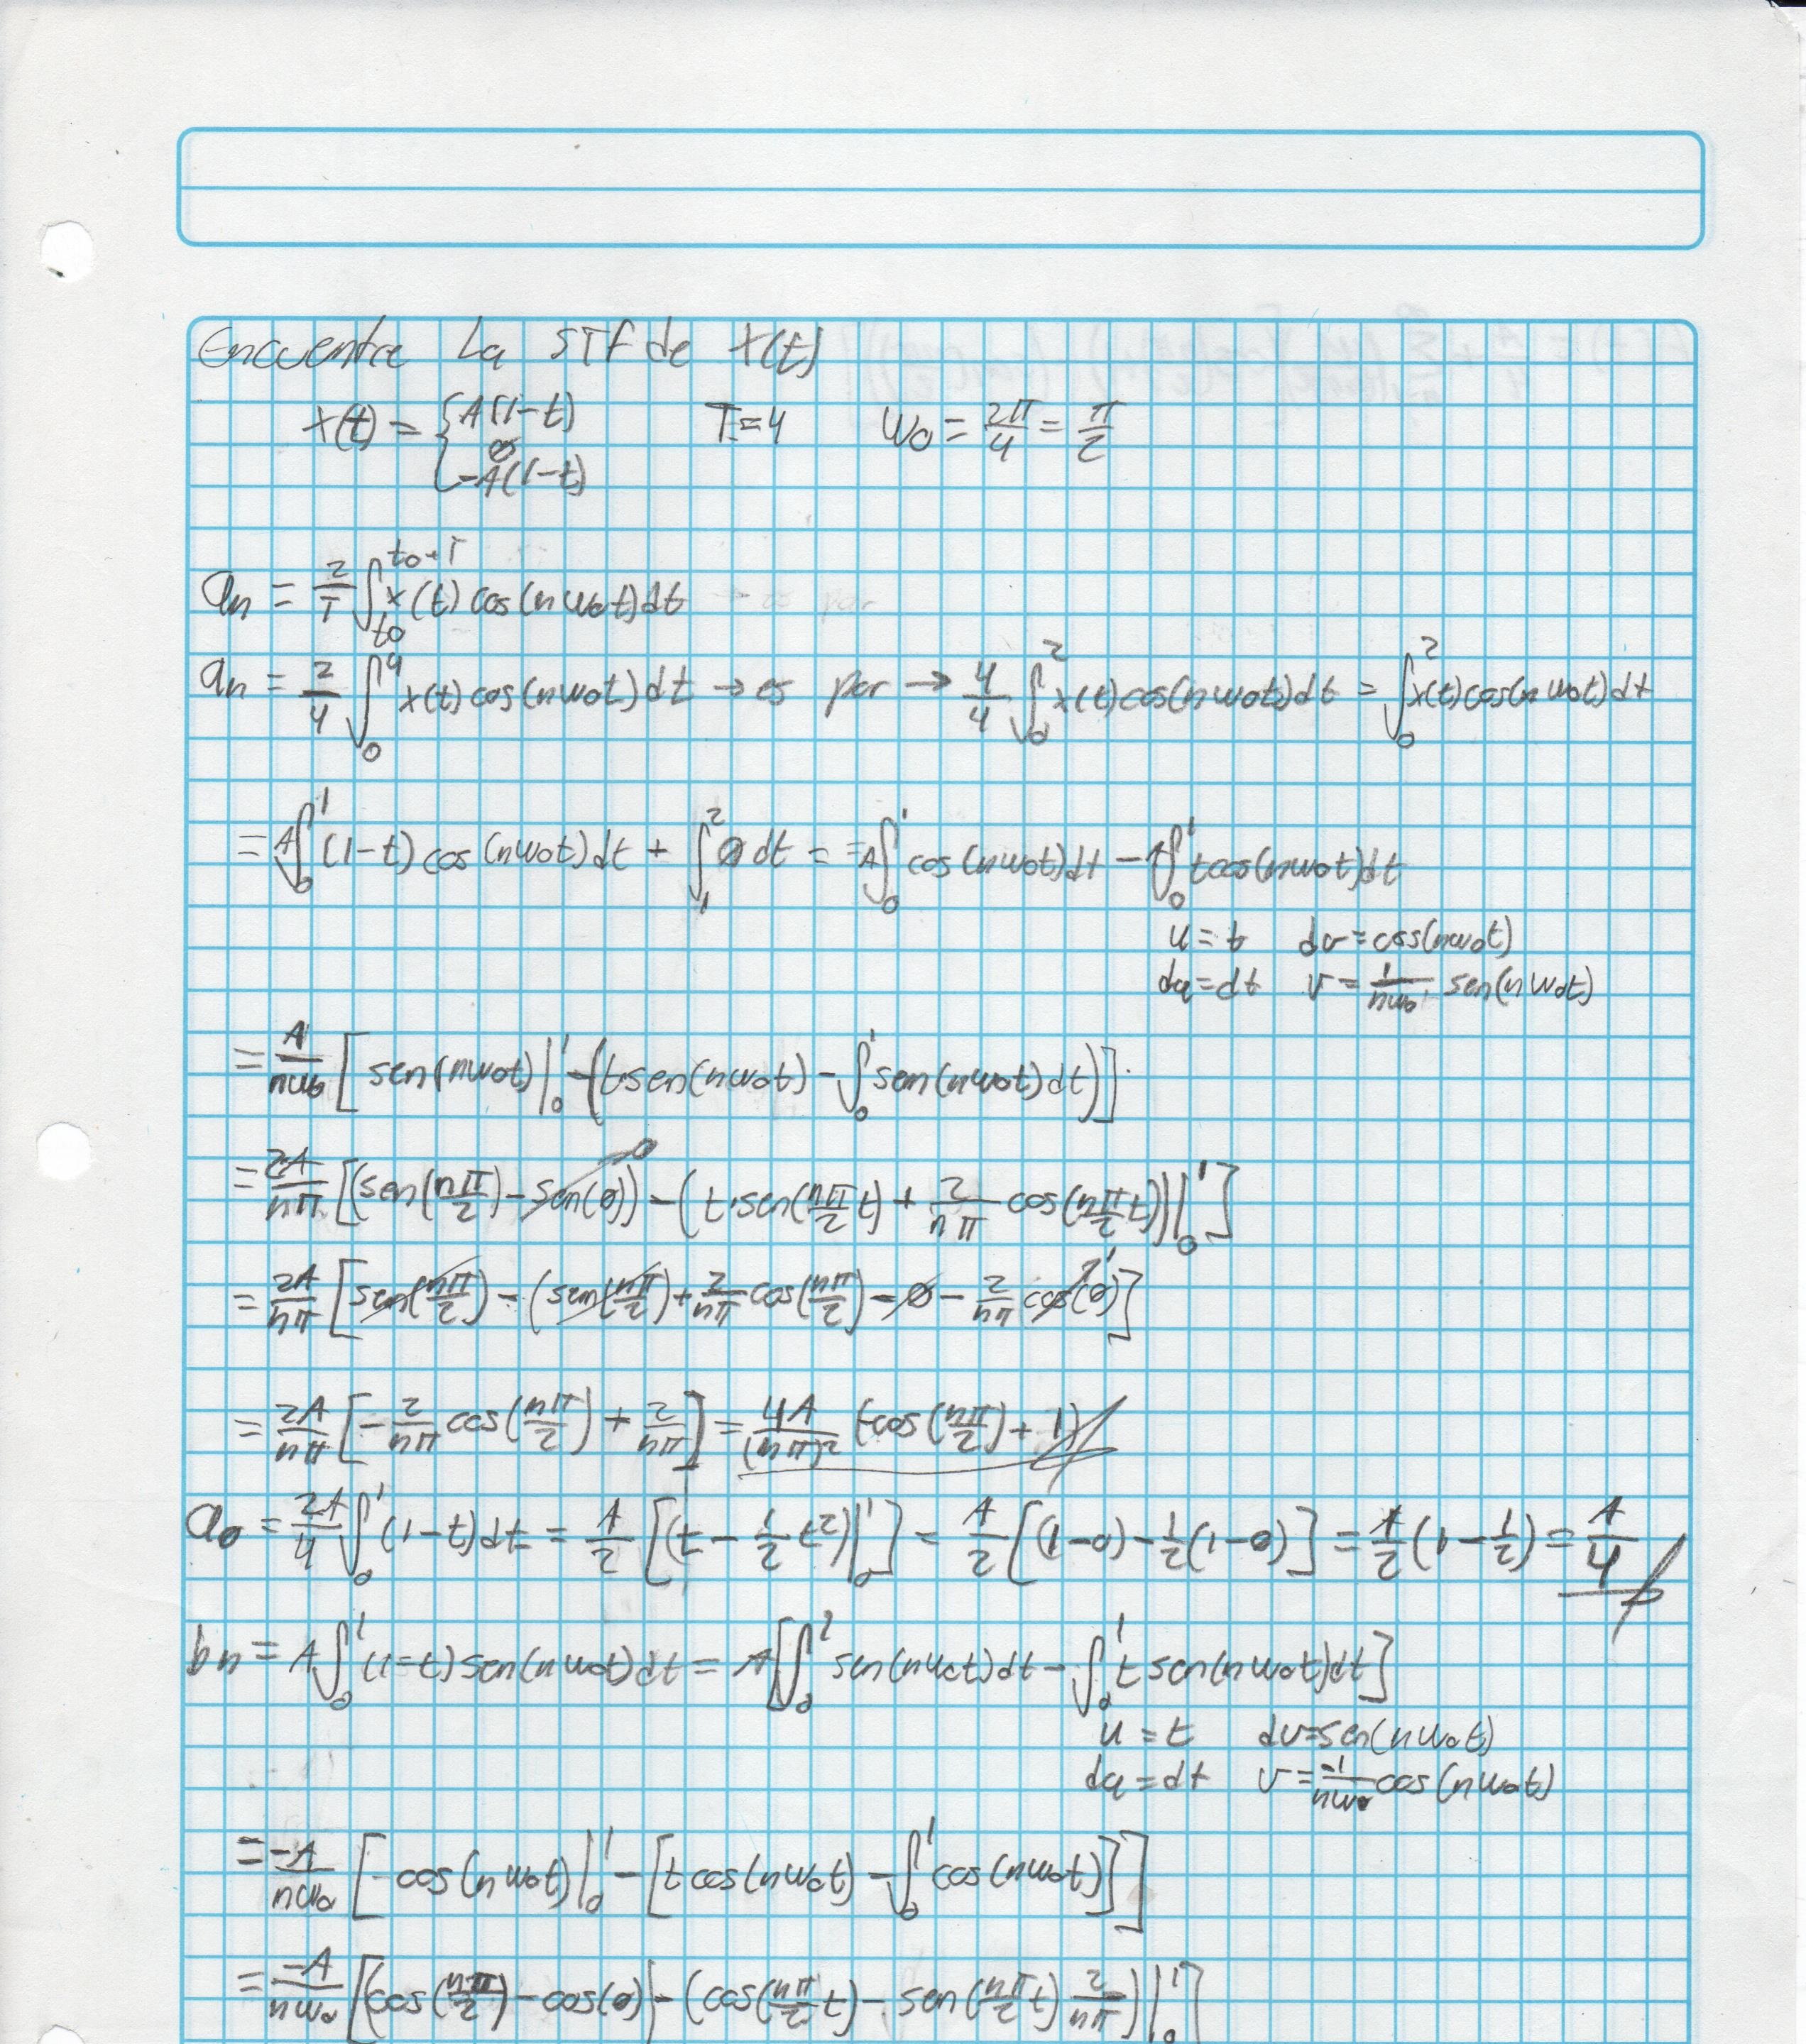 Encuentre La STF de x(t)
x(t) = { A(1-t)   T=4   w0 = 2π/4 = π/2
0
-A(1-t)
an = 2/T ∫_{t0}^{t0+T} x(t) cos(nw0t)dt
an = 2/4 ∫_0^4 x(t) cos(nw0t)dt → es par → 4/4 ∫_0^2 x(t)cos(nw0t)dt = ∫_0^2 x(t)cos(nw0t)dt
= A∫_0^1 (1-t) cos(nw0t)dt + ∫_1^2 0 dt = = A∫_0^1 cos(nw0t)dt - A∫_0^1 tcos(nw0t)dt
u = t   dv = cos(nw0t)
du = dt   v = 1/nw0 sen(nw0t)
= A/nw0 [ sen(nw0t)|_0^1 - (t·sen(nw0t) - ∫_0^1 sen(nw0t)dt)]
= 2A/nπ [(sen(nπ/2) - sen(0)) - (t·sen(nπ/2 t) + 2/nπ cos(nπ/2 t))|_0^1 ]
= 2A/nπ [sen(nπ/2) - (sen(nπ/2) + 2/nπ cos(nπ/2) - 0 - 2/nπ cos(0)]
= 2A/nπ [-2/nπ cos(nπ/2) + 2/nπ] = 4A/(nπ)² (-cos(nπ/2) + 1)
a0 = 2A/4 ∫_0^1 (1-t)dt = A/2 [(t - 1/2 t²)|_0^1 ] = A/2 [(1-0) - 1/2(1-0)] = A/2 (1 - 1/2) = A/4
bn = A∫_0^1 (1-t) sen(nw0t)dt = A[∫_0^1 sen(nw0t)dt - ∫_0^1 t sen(nw0t)dt]
u = t   dv = sen(nw0t)
du = dt   v = -1/nw0 cos(nw0t)
= -A/nw0 [ -cos(nw0t)|_0^1 - [t cos(nw0t) - ∫_0^1 cos(nw0t)]]
= -A/nw0 [(cos(nπ/2) - cos(0)) - (cos(nπ/2 t) - sen(nπ/2 t) 2/nπ)|_0^1 ]